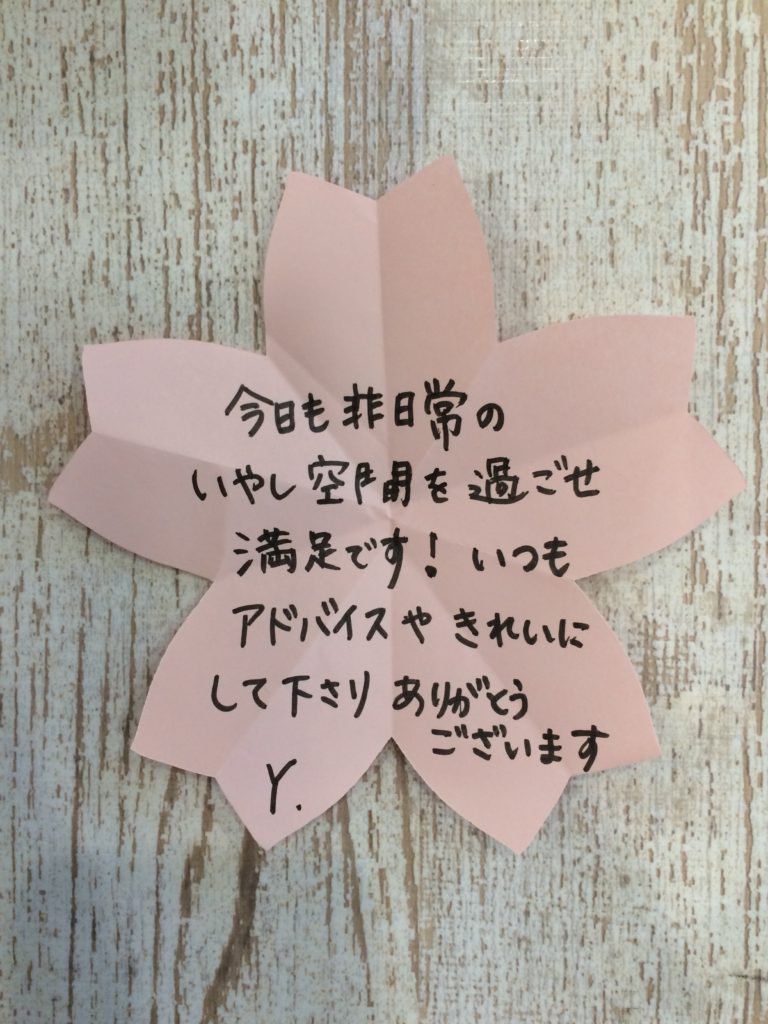 今日も非日常の
いやし空間を過ごせ
満足です! いつも
アドバイスや きれいに
して下さり ありがとう
ございます
Y.